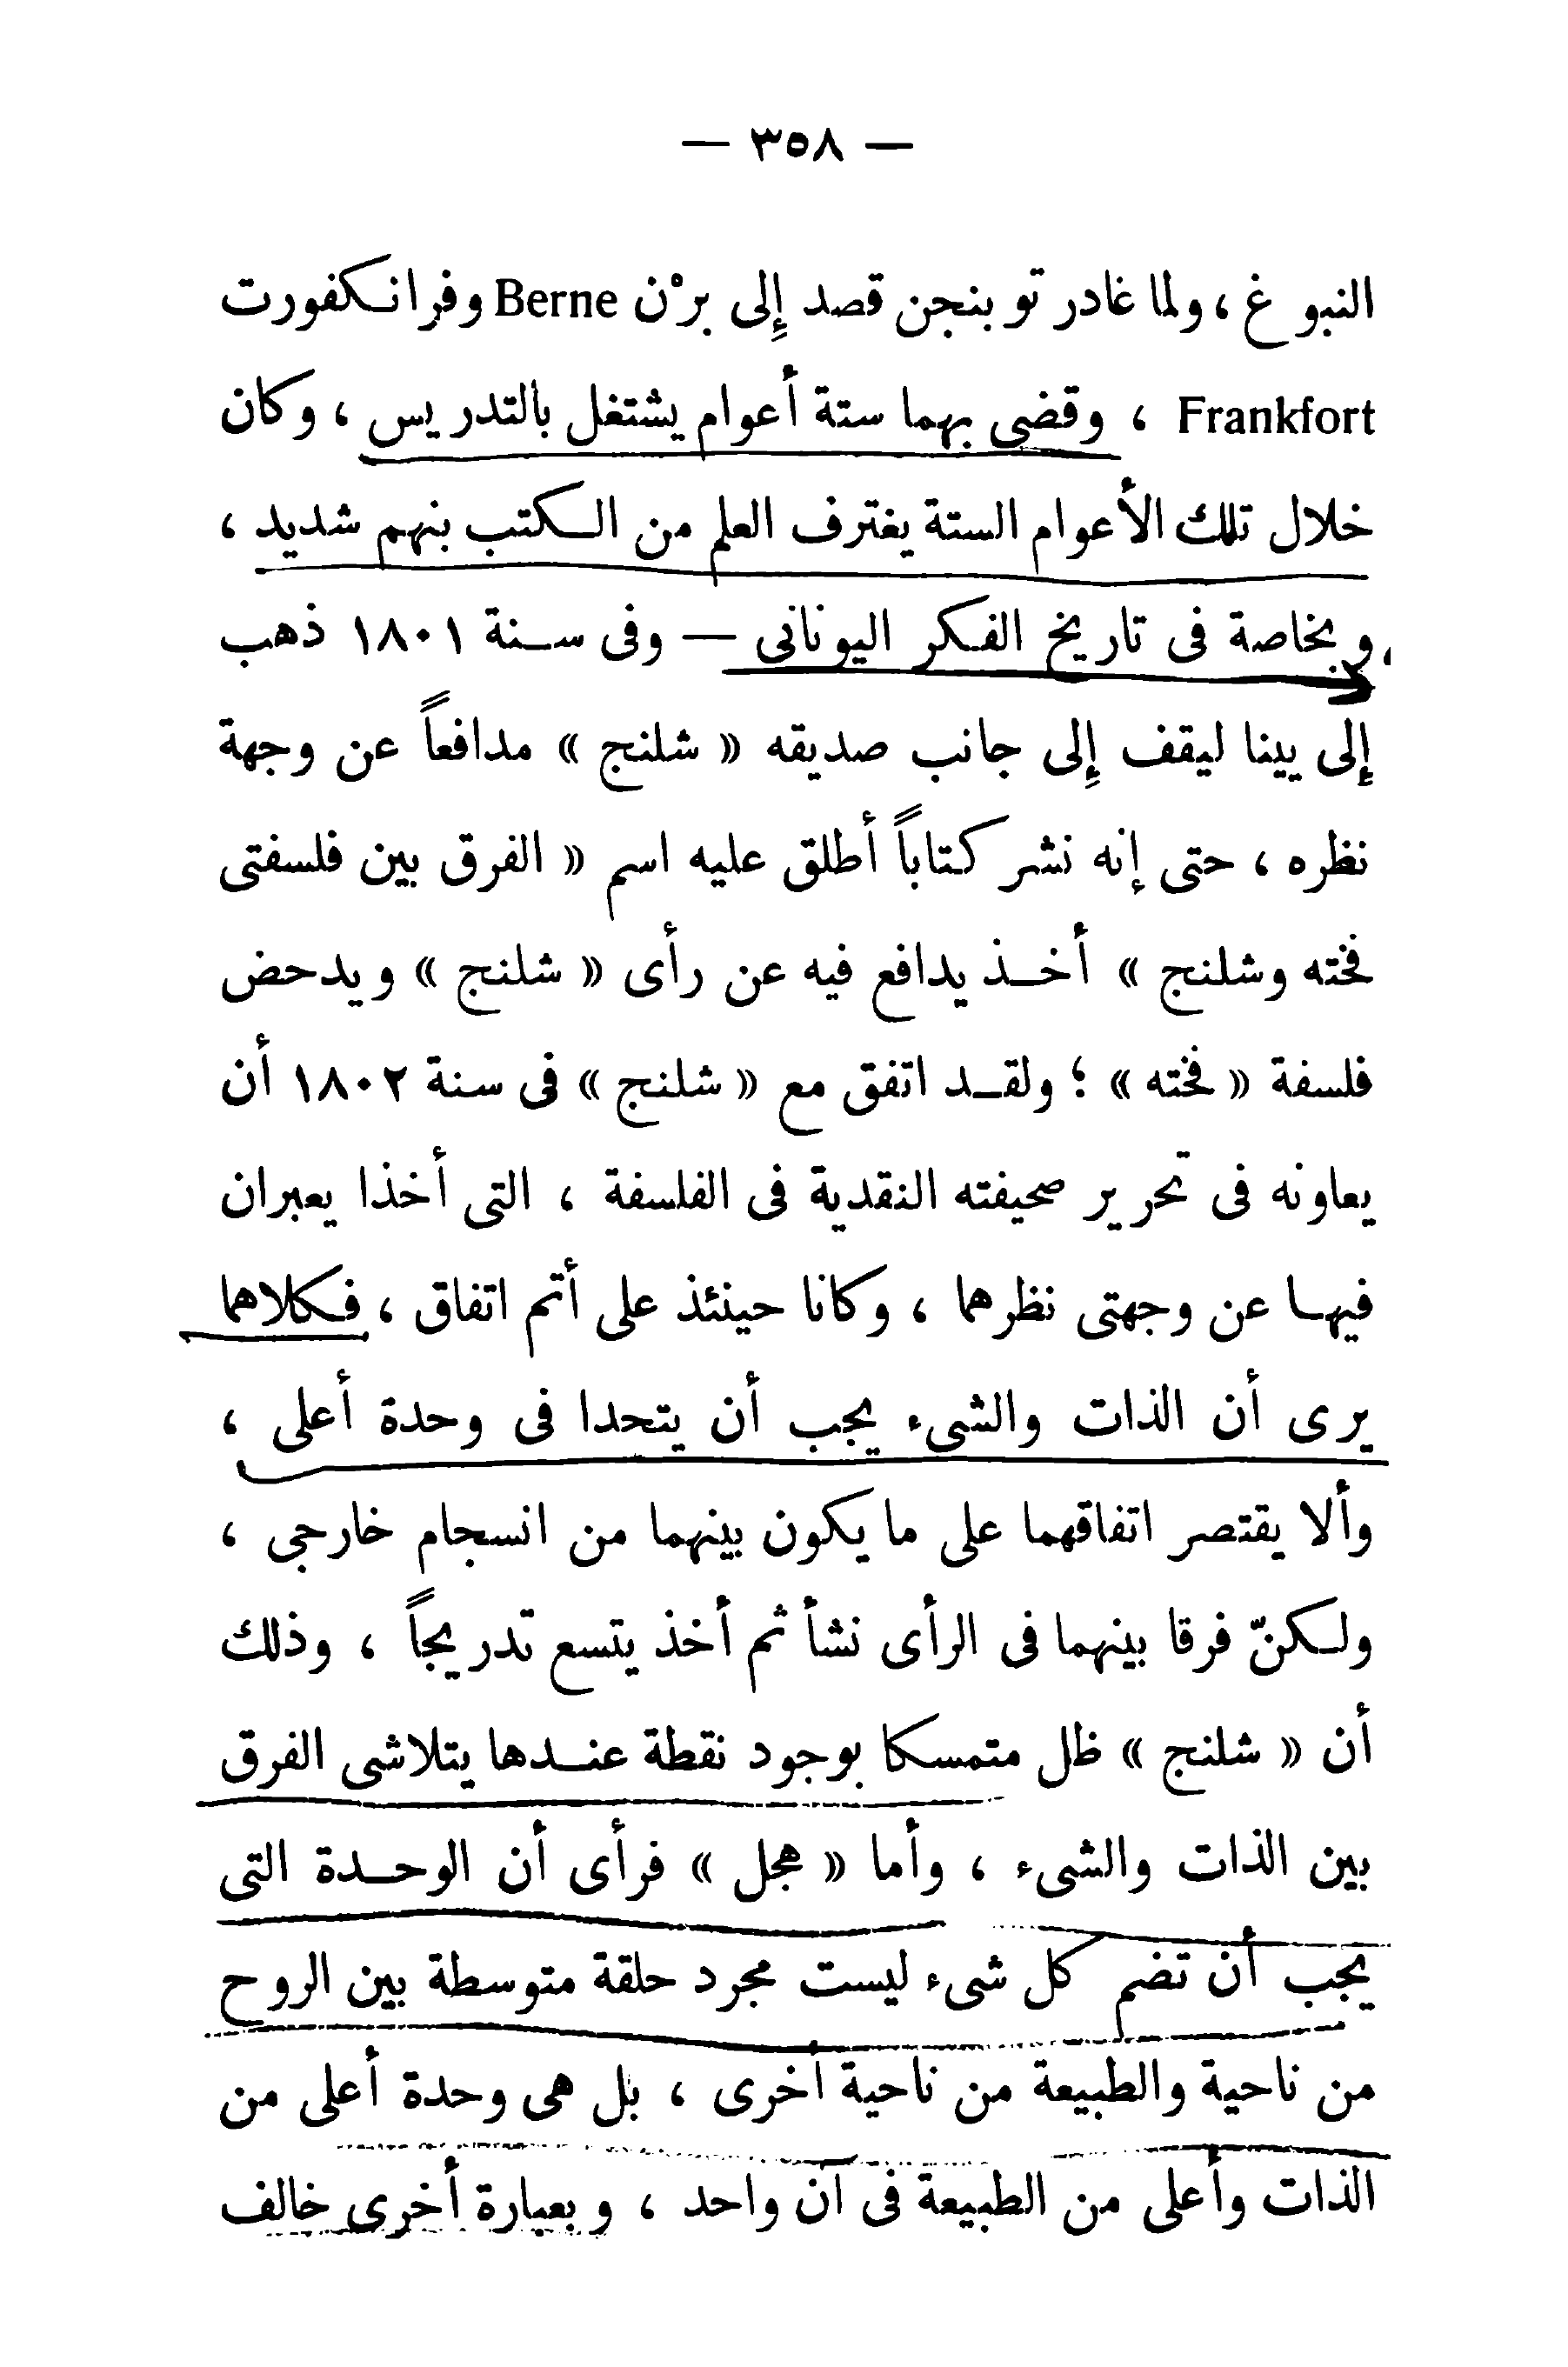 — ٣٥٨ —
النبوغ ، ولما غادر توبنجن قصد إلى برْن Berne وفرانكفورت
Frankfort ، وقضى بهما ستة أعوام يشتغل بالتدريس ، وكان
خلال تلك الأعوام الستة يغترف العلم من الكتب بنهم شديد ،
وبخاصة فى تاريخ الفكر اليونانى — وفى سنة ١٨٠١ ذهب
إلى يينا ليقف إلى جانب صديقه « شلنج » مدافعاً عن وجهة
نظره ، حتى إنه نشر كتاباً أطلق عليه اسم « الفرق بين فلسفتى
فخته وشلنج » أخذ يدافع فيه عن رأى « شلنج » ويدحض
فلسفة « فخته » ؛ ولقد اتفق مع « شلنج » فى سنة ١٨٠٢ أن
يعاونه فى تحرير صحيفته النقدية فى الفلسفة ، التى أخذا يعبران
فيها عن وجهتى نظرهما ، وكانا حينئذ على أتم اتفاق ، فكلاهما
يرى أن الذات والشىء يجب أن يتحدا فى وحدة أعلى ،
وألا يقتصر اتفاقهما على ما يكون بينهما من انسجام خارجى ،
ولكنّ فرقا بينهما فى الرأى نشأ ثم أخذ يتسع تدريجاً ، وذلك
أن « شلنج » ظل متمسكا بوجود نقطة عندها يتلاشى الفرق
بين الذات والشىء ، وأما « هجل » فرأى أن الوحدة التى
يجب أن تضم كل شىء ليست مجرد حلقة متوسطة بين الروح
من ناحية والطبيعة من ناحية أخرى ، بل هى وحدة أعلى من
الذات وأعلى من الطبيعة فى آن واحد ، وبعبارة أخرى خالف